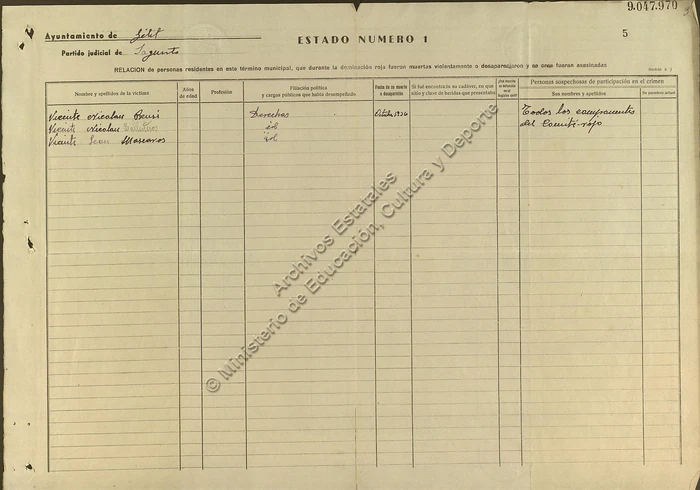 9.047.970
Ayuntamiento de Gilet
Partido judicial de Sagunto
ESTADO NUMERO 1
5
RELACION de personas residentes en este término municipal, que durante la dominación roja fueron muertas violentamente o desaparecieron y se cree fueran asesinadas
Nombre y apellidos de la víctima
Años de edad
Profesión
Filiación política y cargos públicos que había desempeñado
Fecha de su muerte o desaparición
Si fué encontrado su cadáver, en qué sitio y clave de heridas que presentaba
Personas sospechosas de participación en el crimen
Sus nombres y apellidos
Su paradero actual
Vicente Nicolau
Derechas
Octubre 1936
Todos los componentes
Vicente Nicolau
id
del Comité-rojo
Vicente Mascaros
id
© Ministerio de Educación, Cultura y Deporte
Archivos Estatales